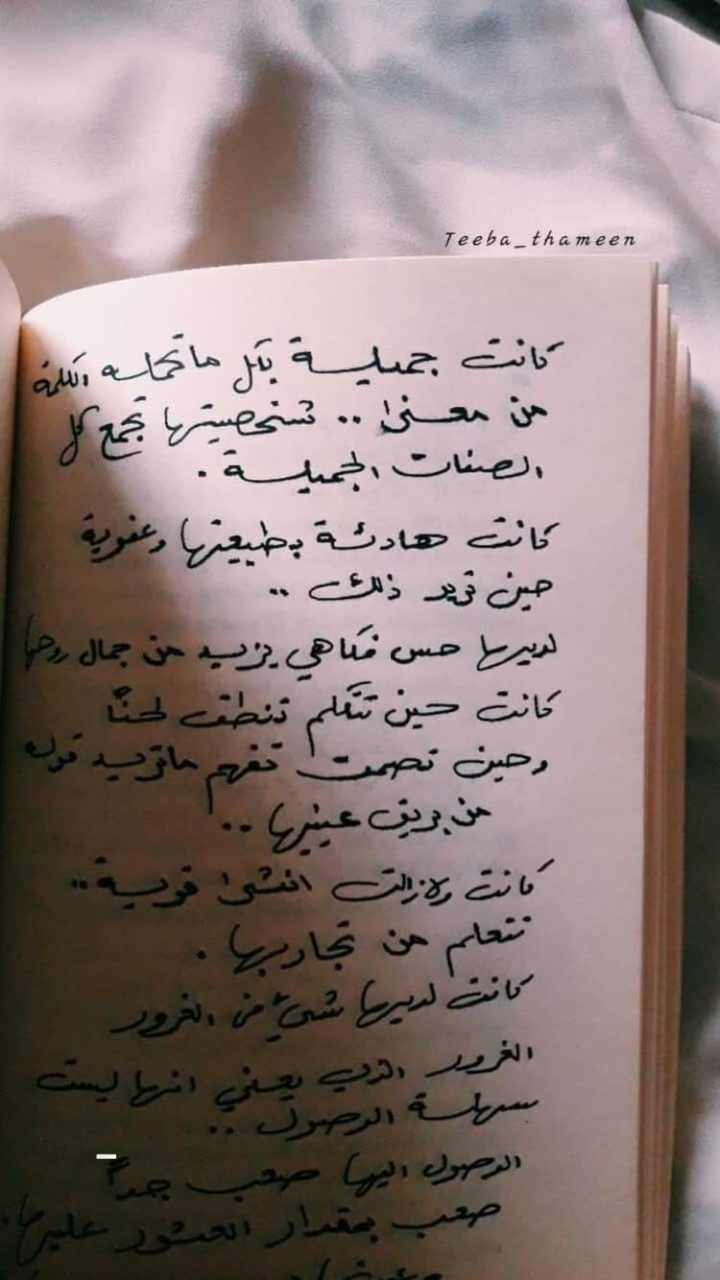 Teeba_thameen
كانت جميلة بكل ماتحمله الكلمة
من معنىٰ .. شخصيتها تجمع كل
الصفات الجميلة .
كانت هادئة بطبيعتها وعفوية
حين تريد ذلك ..
لديها حس فكاهي يزيد من جمال روحها
كانت حين تتكلم تنطق لحنًا
وحين تصمت تفهم ماتريد قوله
من بريق عينيها ..
كانت ولازالت انثىٰ قوية ..
تتعلم من تجاربها .
كانت لديها شيء من الغرور
الغرور الذي يعني انها ليست
سهلة الوصول ..
الوصول اليها صعب جداً
صعب بمقدار العثور عليها .